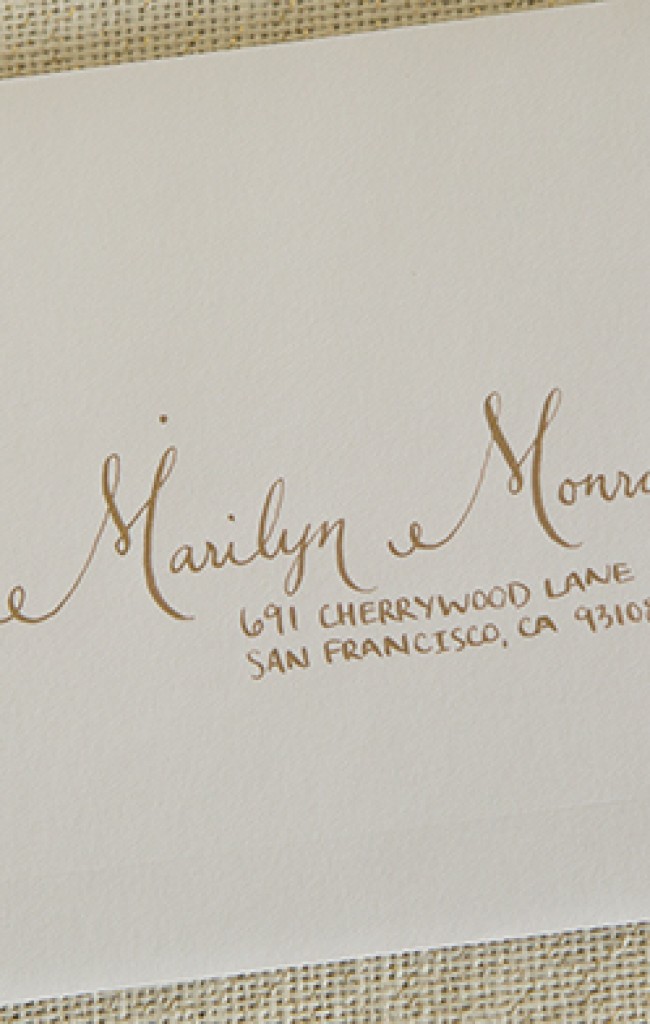 Marilyn Monro
691 CHERRYWOOD LANE
SAN FRANCISCO, CA 93108